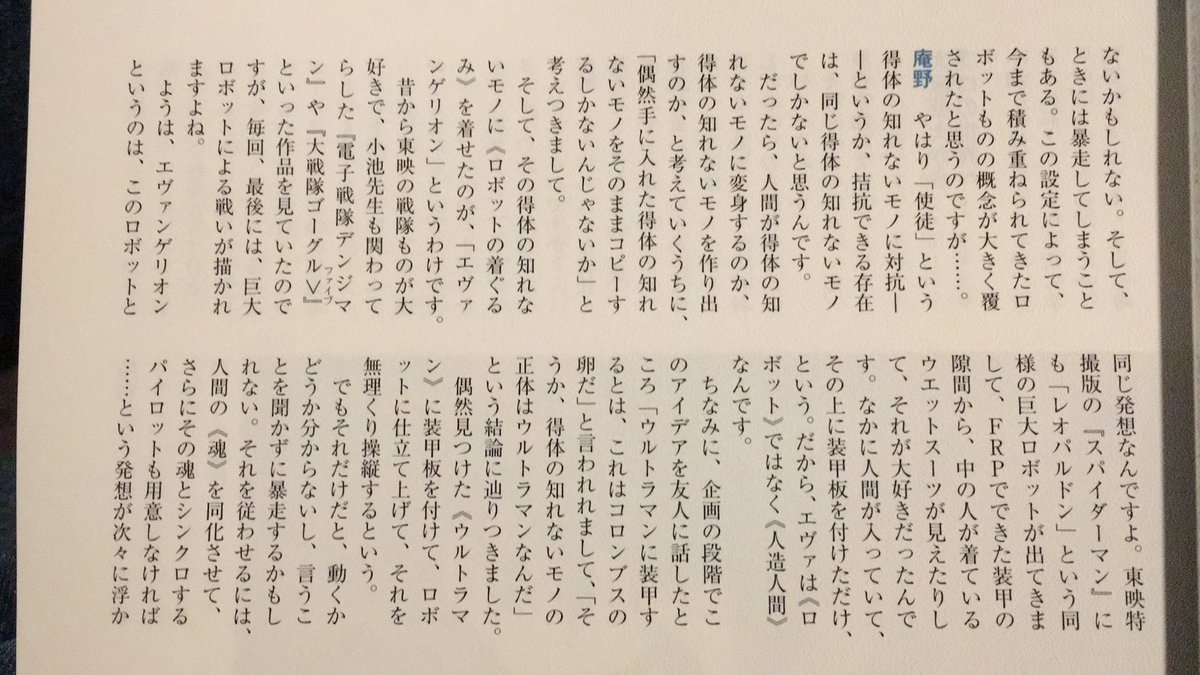 ないかもしれない。そして、
ときには暴走してしまうこと
もある。この設定によって、
今まで積み重ねられてきたロ
ボットものの概念が大きく覆
されたと思うのですが……。
庵野　やはり「使徒」という
得体の知れないモノに対抗―
―というか、拮抗できる存在
は、同じ得体の知れないモノ
でしかないと思うんです。
　だったら、人間が得体の知
れないモノに変身するのか、
得体の知れないモノを作り出
すのか、と考えていくうちに、
「偶然手に入れた得体の知れ
ないモノをそのままコピーす
るしかないんじゃないか」と
考えつきまして。
　そして、その得体の知れな
いモノに《ロボットの着ぐる
み》を着せたのが、「エヴァ
ンゲリオン」というわけです。
　昔から東映の戦隊ものが大
好きで、小池先生も関わって
らした『電子戦隊デンジマ
ン』や『大戦隊ゴーグルⅤ』
ファイブ
といった作品を見ていたので
すが、毎回、最後には、巨大
ロボットによる戦いが描かれ
ますよね。
　ようは、エヴァンゲリオン
というのは、このロボットと
同じ発想なんですよ。東映特
撮版の『スパイダーマン』に
も「レオパルドン」という同
様の巨大ロボットが出てきま
して、ＦＲＰでできた装甲の
隙間から、中の人が着ている
ウエットスーツが見えたりし
て、それが大好きだったんで
す。なかに人間が入っていて、
その上に装甲板を付けただけ、
という。だから、エヴァは《ロ
ボット》ではなく《人造人間》
なんです。
　ちなみに、企画の段階でこ
のアイデアを友人に話したと
ころ「ウルトラマンに装甲す
るとは、これはコロンブスの
卵だ」と言われれまして、「そ
うか、得体の知れないモノの
正体はウルトラマンなんだ」
という結論に辿りつきました。
　偶然見つけた《ウルトラマ
ン》に装甲板を付けて、ロボ
ットに仕立て上げて、それを
無理くり操縦するという。
　でもそれだけだと、動くか
どうか分からないし、言うこ
とを聞かずに暴走するかもし
れない。それを従わせるには、
人間の《魂》を同化させて、
さらにその魂とシンクロする
パイロットも用意しなければ
……という発想が次々に浮か